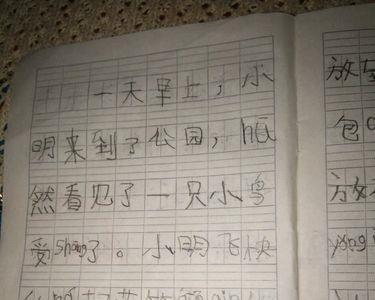 一天早上，小 放
明来到了公园，hū 包
然看见了一只小鸟 放
受shāng了。小明飞快